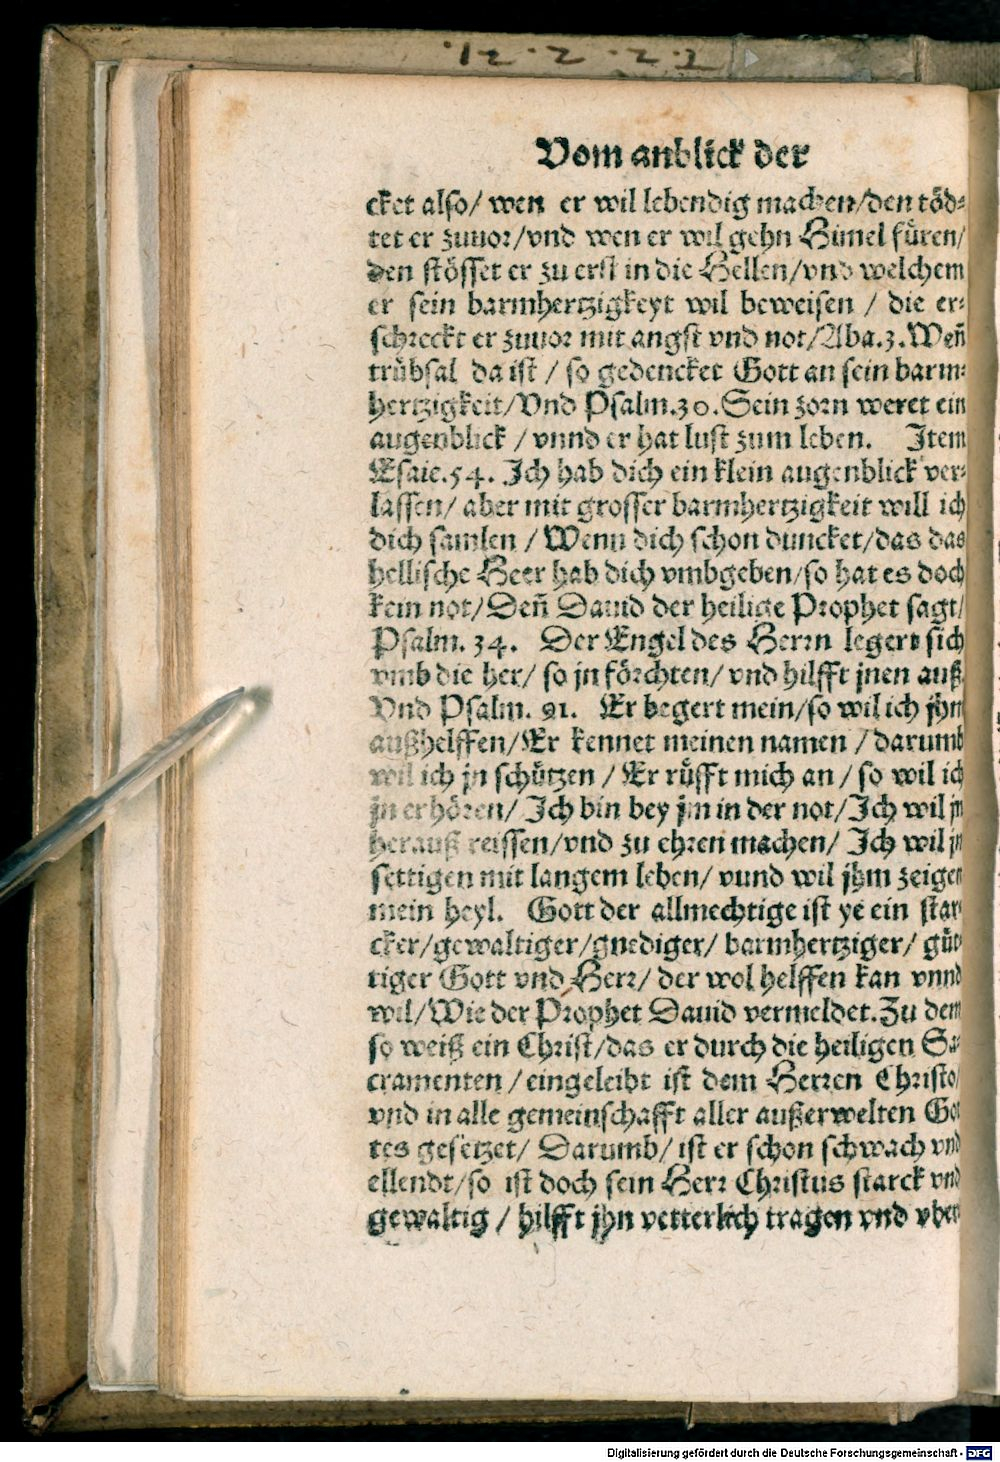 Vom anblick der
cket also/ wen er wil lebendig machen/den töd-
tet er zuuor/vnd wen er wil gehn Himel füren/
den stösset er zu erst in die Hellen/vnd welchem
er sein barmhertzigkeyt wil beweisen / die er-
schreckt er zuuor mit angst vnd not/Aba.3.Weñ
trübsal da ist / so gedencket Gott an sein barm-
hertzigkeit/Vnd Psalm.30.Sein zorn weret ein
augenblick / vnnd er hat lust zum leben. Item
Esaie.54. Ich hab dich ein klein augenblick ver-
lassen/ aber mit grosser barmhertzigkeit will ich
dich samlen / Wenn dich schon duncket/das das
hellische Heer hab dich vmbgeben/so hat es doch
kein not/Deñ Dauid der heilige Prophet sagt/
Psalm. 34. Der Engel des Herrn legert sich
vmb die her/ so jn förchten/ vnd hilfft jnen auß.
Vnd Psalm. 91. Er begert mein/so wil ich jhn
außhelffen/Er kennet meinen namen / darumb
wil ich jn schützen / Er rüfft mich an / so wil ich
jn erhören/ Ich bin bey jm in der not/Ich wil jn
herauß reissen/vnd zu ehren machen/ Ich wil jn
settigen mit langem leben/ vnnd wil jhm zeigen
mein heyl. Gott der allmechtige ist ye ein star-
cker/gewaltiger/gnediger/ barmhertziger/ gü-
tiger Gott vnd Herr/ der wol helffen kan vnnd
wil/Wie der Prophet Dauid vermeldet.Zu dem
so weiß ein Christ/das er durch die heiligen Sa-
cramenten / eingeleibt ist dem Herren Christo/
vnd in alle gemeinschafft aller außerwelten Got
tes gesetzet/ Darumb/ ist er schon schwach vnd
ellendt/so ist doch sein Herr Christus starck vnd
gewaltig / hilfft jhn vetterlich tragen vnd vber
Digitalisierung gefördert durch die Deutsche Forschungsgemeinschaft - DFG